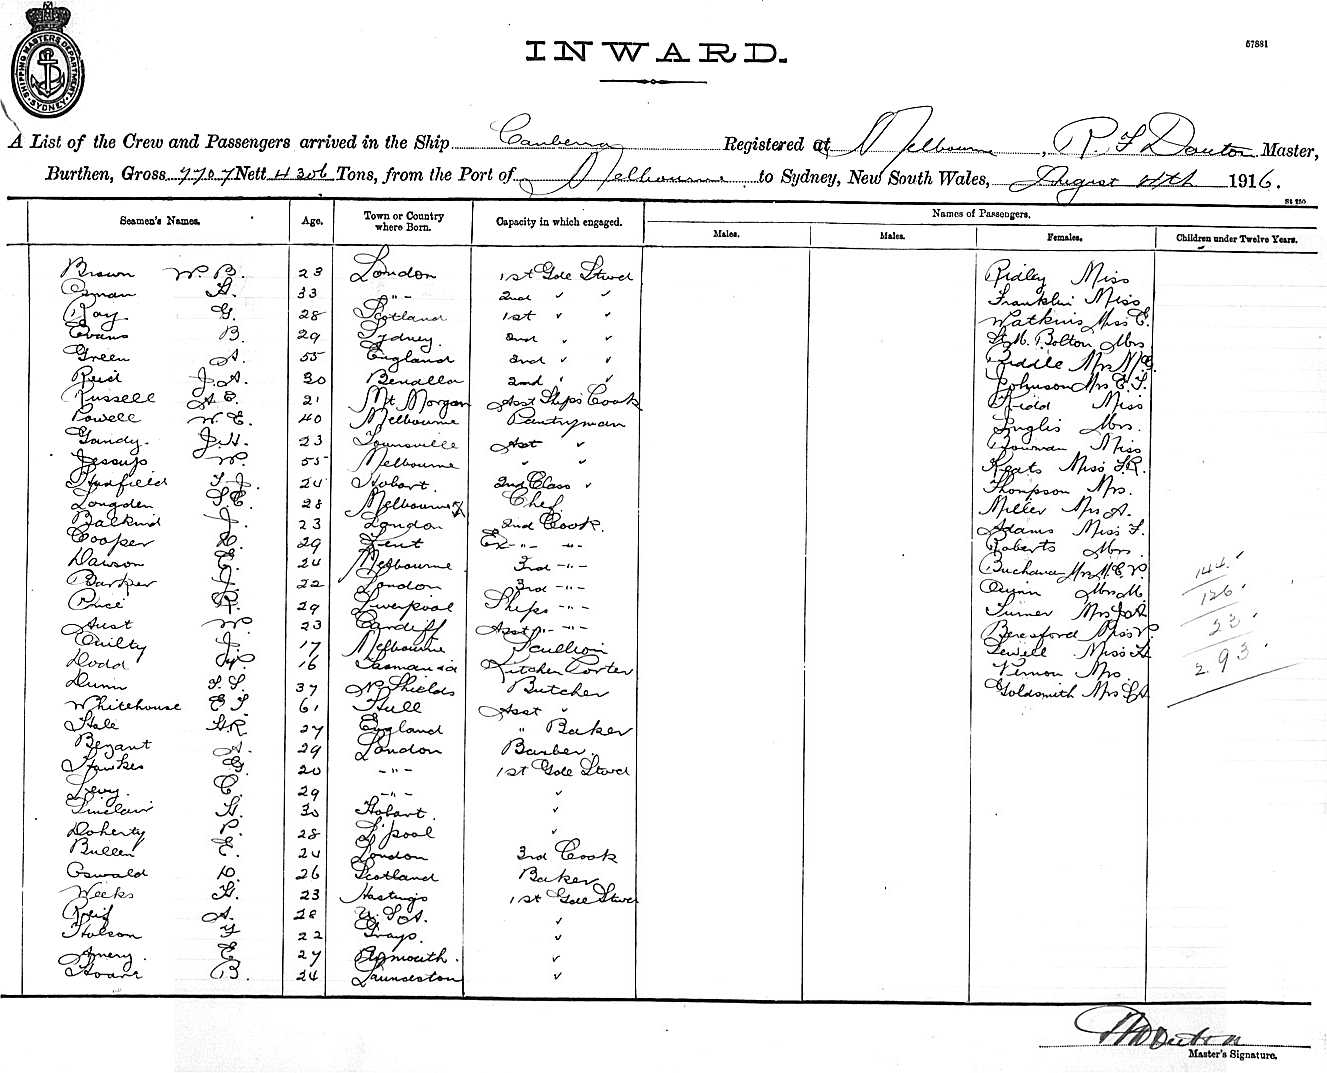 SHIPPING MASTERS DEPARTMENT SYDNEY
INWARD.
57881
A List of the Crew and Passengers arrived in the Ship Canberra Registered at Melbourne, R. F. Master,
Burthen, Gross 7707 Nett 4306 Tons, from the Port of Melbourne to Sydney, New South Wales, August 1916.
St 150.
Seamen's Names. Age. Town or Country where Born. Capacity in which engaged. Names of Passengers.
Males. Males. Females. Children under Twelve Years.
Brown W. B. 23 London 1st Gde Stwd Ridley Miss
Osman H. 33 -"- 2nd ✓ ✓ Franklin Miss
Ray G. 28 Scotland 1st ✓ ✓ Watkins Miss E.
Evans B. 29 Sydney. 2nd ✓ ✓ St. M. Bolton Mrs
Green A. 55 England 2nd ✓ ✓ Biddle Mrs
Reid J. A. 30 Benalla 2nd ✓ ✓ Johnson Mrs E. F.
Russell A E. 21 Mt Morgan Asst Ships Cook Kidd Miss
Powell W. E. 40 Melbourne Pantryman Inglis Mrs.
Gandy. J. H. 23 Townsville Asst ✓ Bowman Miss
Jessup W. 55 Melbourne ✓ ✓ Keats Miss F. R.
Stanfield 24 Hobart. 2nd Class ✓ Thompson Mrs.
Longden 28 Melbourne Chef Miller Mrs A.
J. 23 London 2nd Cook. Adams Miss F.
Cooper 29 Kent Ex -"- -"- Roberts Mrs.
Dawson E. 24 Melbourne 3rd -"- Buchanan Mrs
144
Barker J. 22 London 3rd -"- Quinn Mrs M.
126
Price R. 29 Liverpool Ships -"- Turner Mrs
Aust W. 23 Cardiff Asst -"- -"- Beresford Miss V.
23
Quilty J. 17 Melbourne Scullion Sewell Miss H
Dodd 16 Tasmania Kitchen Porter Vernon Mrs.
293
Dunn 37 N. Shields Butcher Goldsmith Mrs
Whitehouse E F 61 Hull Asst ✓
Hale H. R. 27 England " Baker
Bezant A. 29 London Barber.
Hawkes G. 20 -"- 1st Gde Stwd
Levy. C. 29 -"- ✓
Sinclair H. 30 Hobart. ✓
Doherty P. 28 L'pool ✓
Bullen E. 24 London 3rd Cook
Oswald D. 26 Scotland Baker
Weeks H. 23 Hastings 1st Gde Stwd
Reid A. 28 U. S. A. ✓
Holson F 22 Grays. ✓
Amery. E 27 Plymouth. ✓
Hoare B. 24 Launceston ✓
Master's Signature.